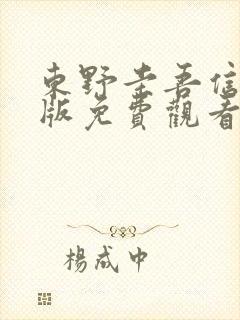 東野圭吾信
版免費觀看
楊成中